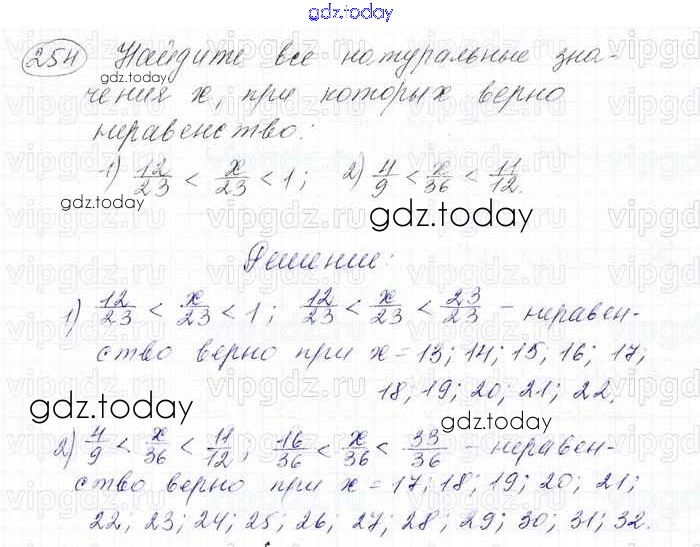 gdz.today
254 Найдите все натуральные зна-
gdz.today
чения x, при которых верно
неравенство:
1) 12/23 < x/23 < 1; 2) 4/9 < x/36 < 11/12.
gdz.today
gdz.today
Решение:
1) 12/23 < x/23 < 1; 12/23 < x/23 < 23/23 – неравен-
ство верно при x = 13; 14; 15; 16; 17;
18; 19; 20; 21; 22.
gdz.today
gdz.today
2) 4/9 < x/36 < 11/12; 16/36 < x/36 < 33/36 – неравен-
ство верно при x = 17; 18; 19; 20; 21;
22; 23; 24; 25; 26; 27; 28; 29; 30; 31; 32.